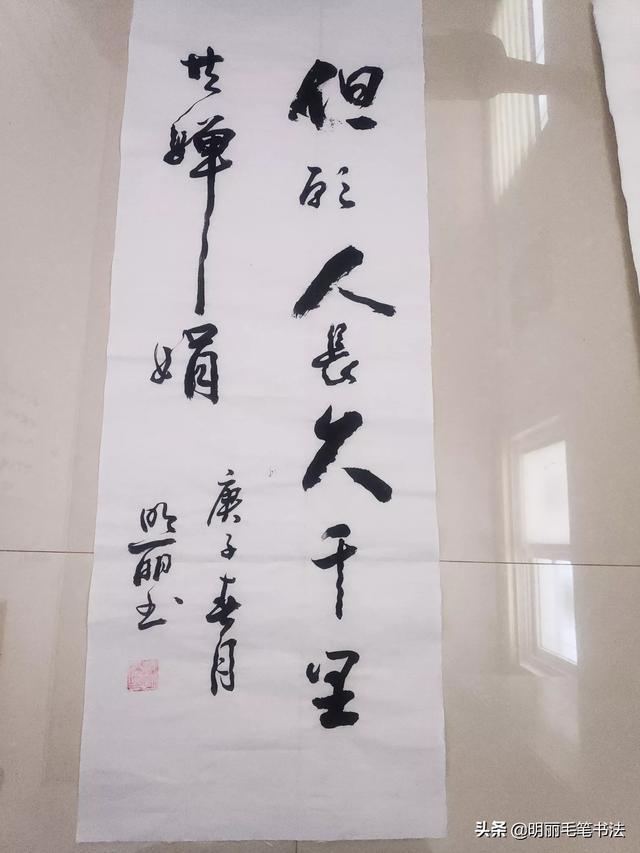 但願人長久千里
共嬋娟
庚子春月
明丽书
头条 @明丽毛笔书法